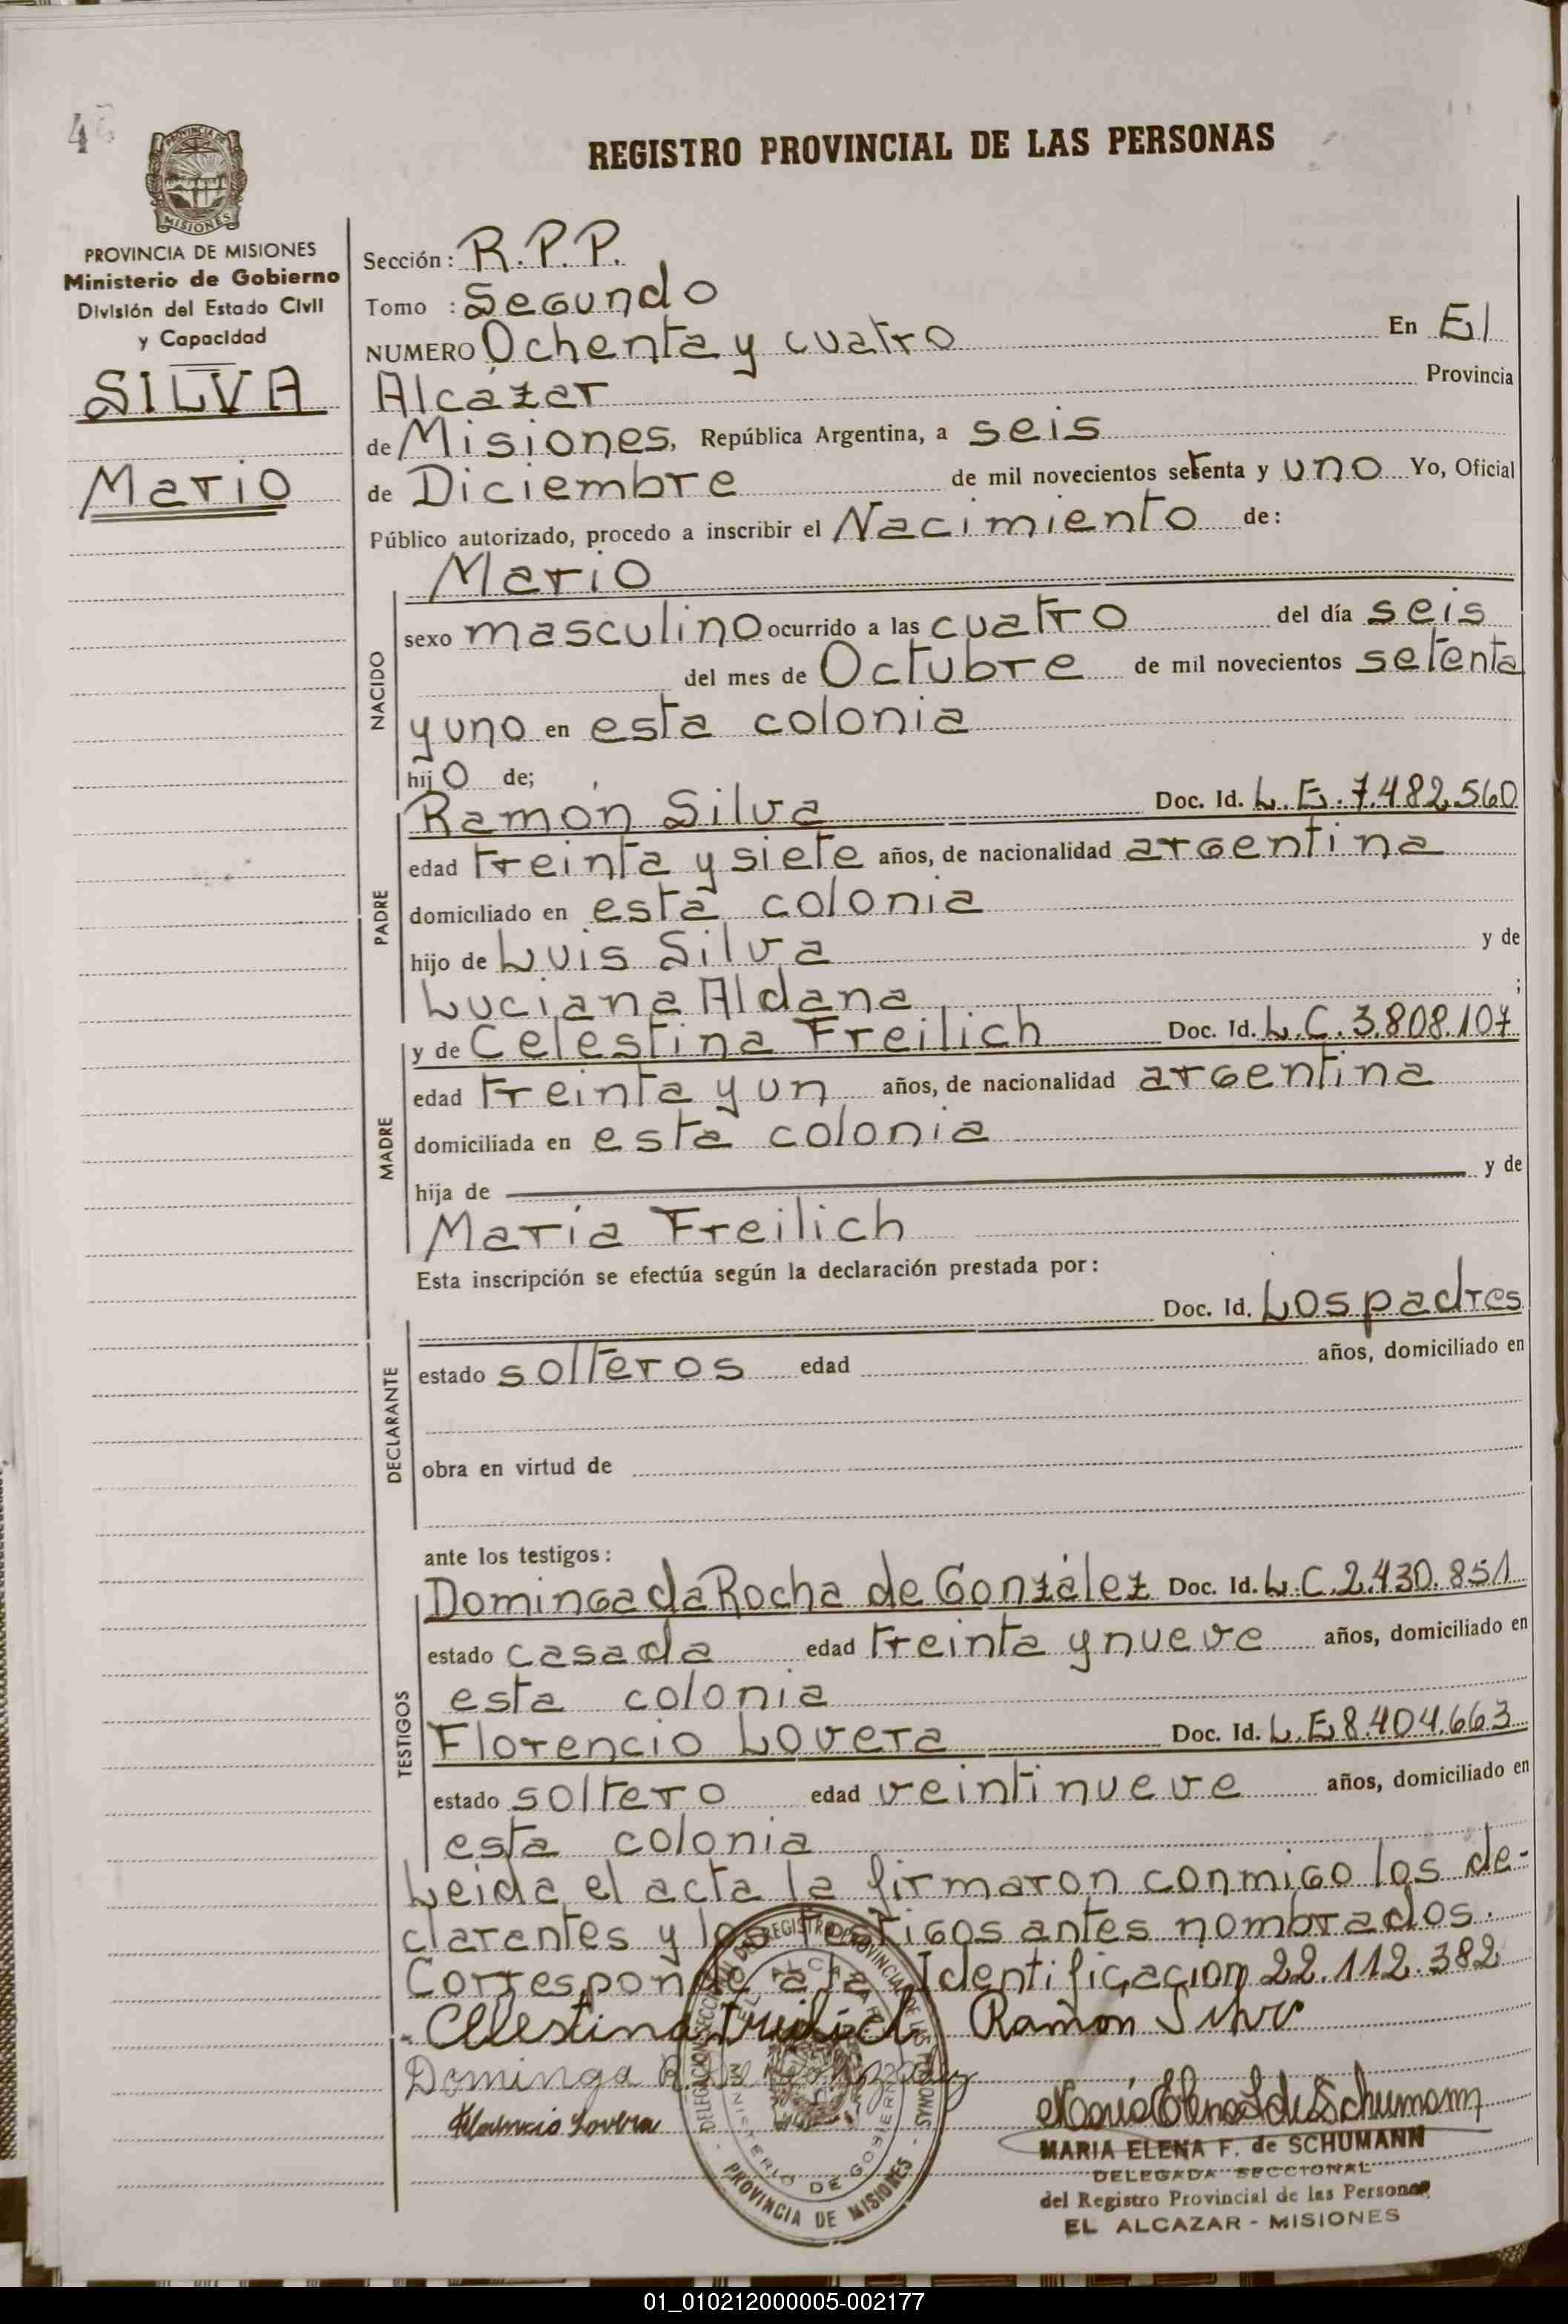 REGISTRO PROVINCIAL DE LAS PERSONAS
PROVINCIA DE MISIONES
Ministerio de Gobierno
División del Estado Civil
y Capacidad
SILVA
Mario
Sección: R.P.P.
Tomo : Segundo
NUMERO Ochenta y cuatro En El
Alcázar Provincia
de Misiones, República Argentina, a seis
de Diciembre de mil novecientos setenta y uno Yo, Oficial
Público autorizado, procedo a inscribir el Nacimiento de:
Mario
NACIDO
sexo masculino ocurrido a las cuatro del día seis
del mes de Octubre de mil novecientos setenta
y uno en esta colonia
hijo de;
PADRE
Ramón Silva Doc. Id. L.E. 7.482.560
edad treinta y siete años, de nacionalidad argentina
domiciliado en esta colonia
hijo de Luis Silva y de
Luciana Aldana ;
MADRE
y de Celestina Freilich Doc. Id. L.C. 3.808.107
edad treinta y un años, de nacionalidad argentina
domiciliada en esta colonia
hija de y de
María Freilich
Esta inscripción se efectúa según la declaración prestada por:
DECLARANTE
Doc. Id. Los padres
estado solteros edad años, domiciliado en
obra en virtud de
ante los testigos:
TESTIGOS
Dominga da Rocha de González Doc. Id. L.C. 2.430.851
estado casada edad treinta y nueve años, domiciliado en
esta colonia
Florencio Lovera Doc. Id. L.E 8.404.663
estado soltero edad veintinueve años, domiciliado en
esta colonia
Leida el acta la firmaron conmigo los de-
clarantes y los testigos antes nombrados.
Corresponde a la Identificación 22.112.382
Celestina Freilich Ramón Silva
Dominga R. de
Florencio Lovera
María Elena F de Schumann
MARIA ELENA F. de SCHUMANN
DELEGADA SECCIONAL
del Registro Provincial de las Personas
EL ALCAZAR - MISIONES
DELEGACION SECCIONAL DEL REGISTRO PROVINCIAL DE LAS PERSONAS
EL ALCAZAR
MINISTERIO DE GOBIERNO
PROVINCIA DE MISIONES
01_010212000005-002177